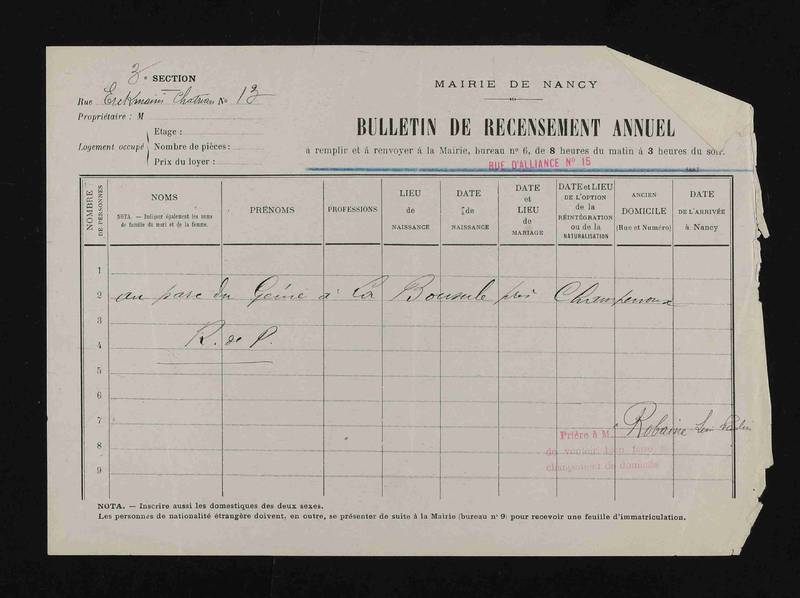 3e SECTION
Rue Erckmann Chatrian No 13
Propriétaire : M
Logement occupé
Etage :
Nombre de pièces :
Prix du loyer :
MAIRIE DE NANCY
BULLETIN DE RECENSEMENT ANNUEL
à remplir et à renvoyer à la Mairie, bureau no 6, de 8 heures du matin à 3 heures du soir.
RUE D'ALLIANCE No 15
NOMBRE DE PERSONNES
NOMS
NOTA. — Indiquer également les noms de famille du mari et de la femme.
PRÉNOMS
PROFESSIONS
LIEU de NAISSANCE
DATE de NAISSANCE
DATE et LIEU de MARIAGE
DATE et LIEU DE L'OPTION de la RÉINTÉGRATION ou de la NATURALISATION
ANCIEN DOMICILE (Rue et Numéro)
DATE DE L'ARRIVÉE à Nancy
1
2 au parc du Génie à La Bouzule près Champenoux
3
4 R. de P.
5
6
7 Prière à M. Robaine Léon
8 de vouloir bien faire
changement de domicile
9
NOTA. — Inscrire aussi les domestiques des deux sexes.
Les personnes de nationalité étrangère doivent, en outre, se présenter de suite à la Mairie (bureau no 9) pour recevoir une feuille d'immatriculation.